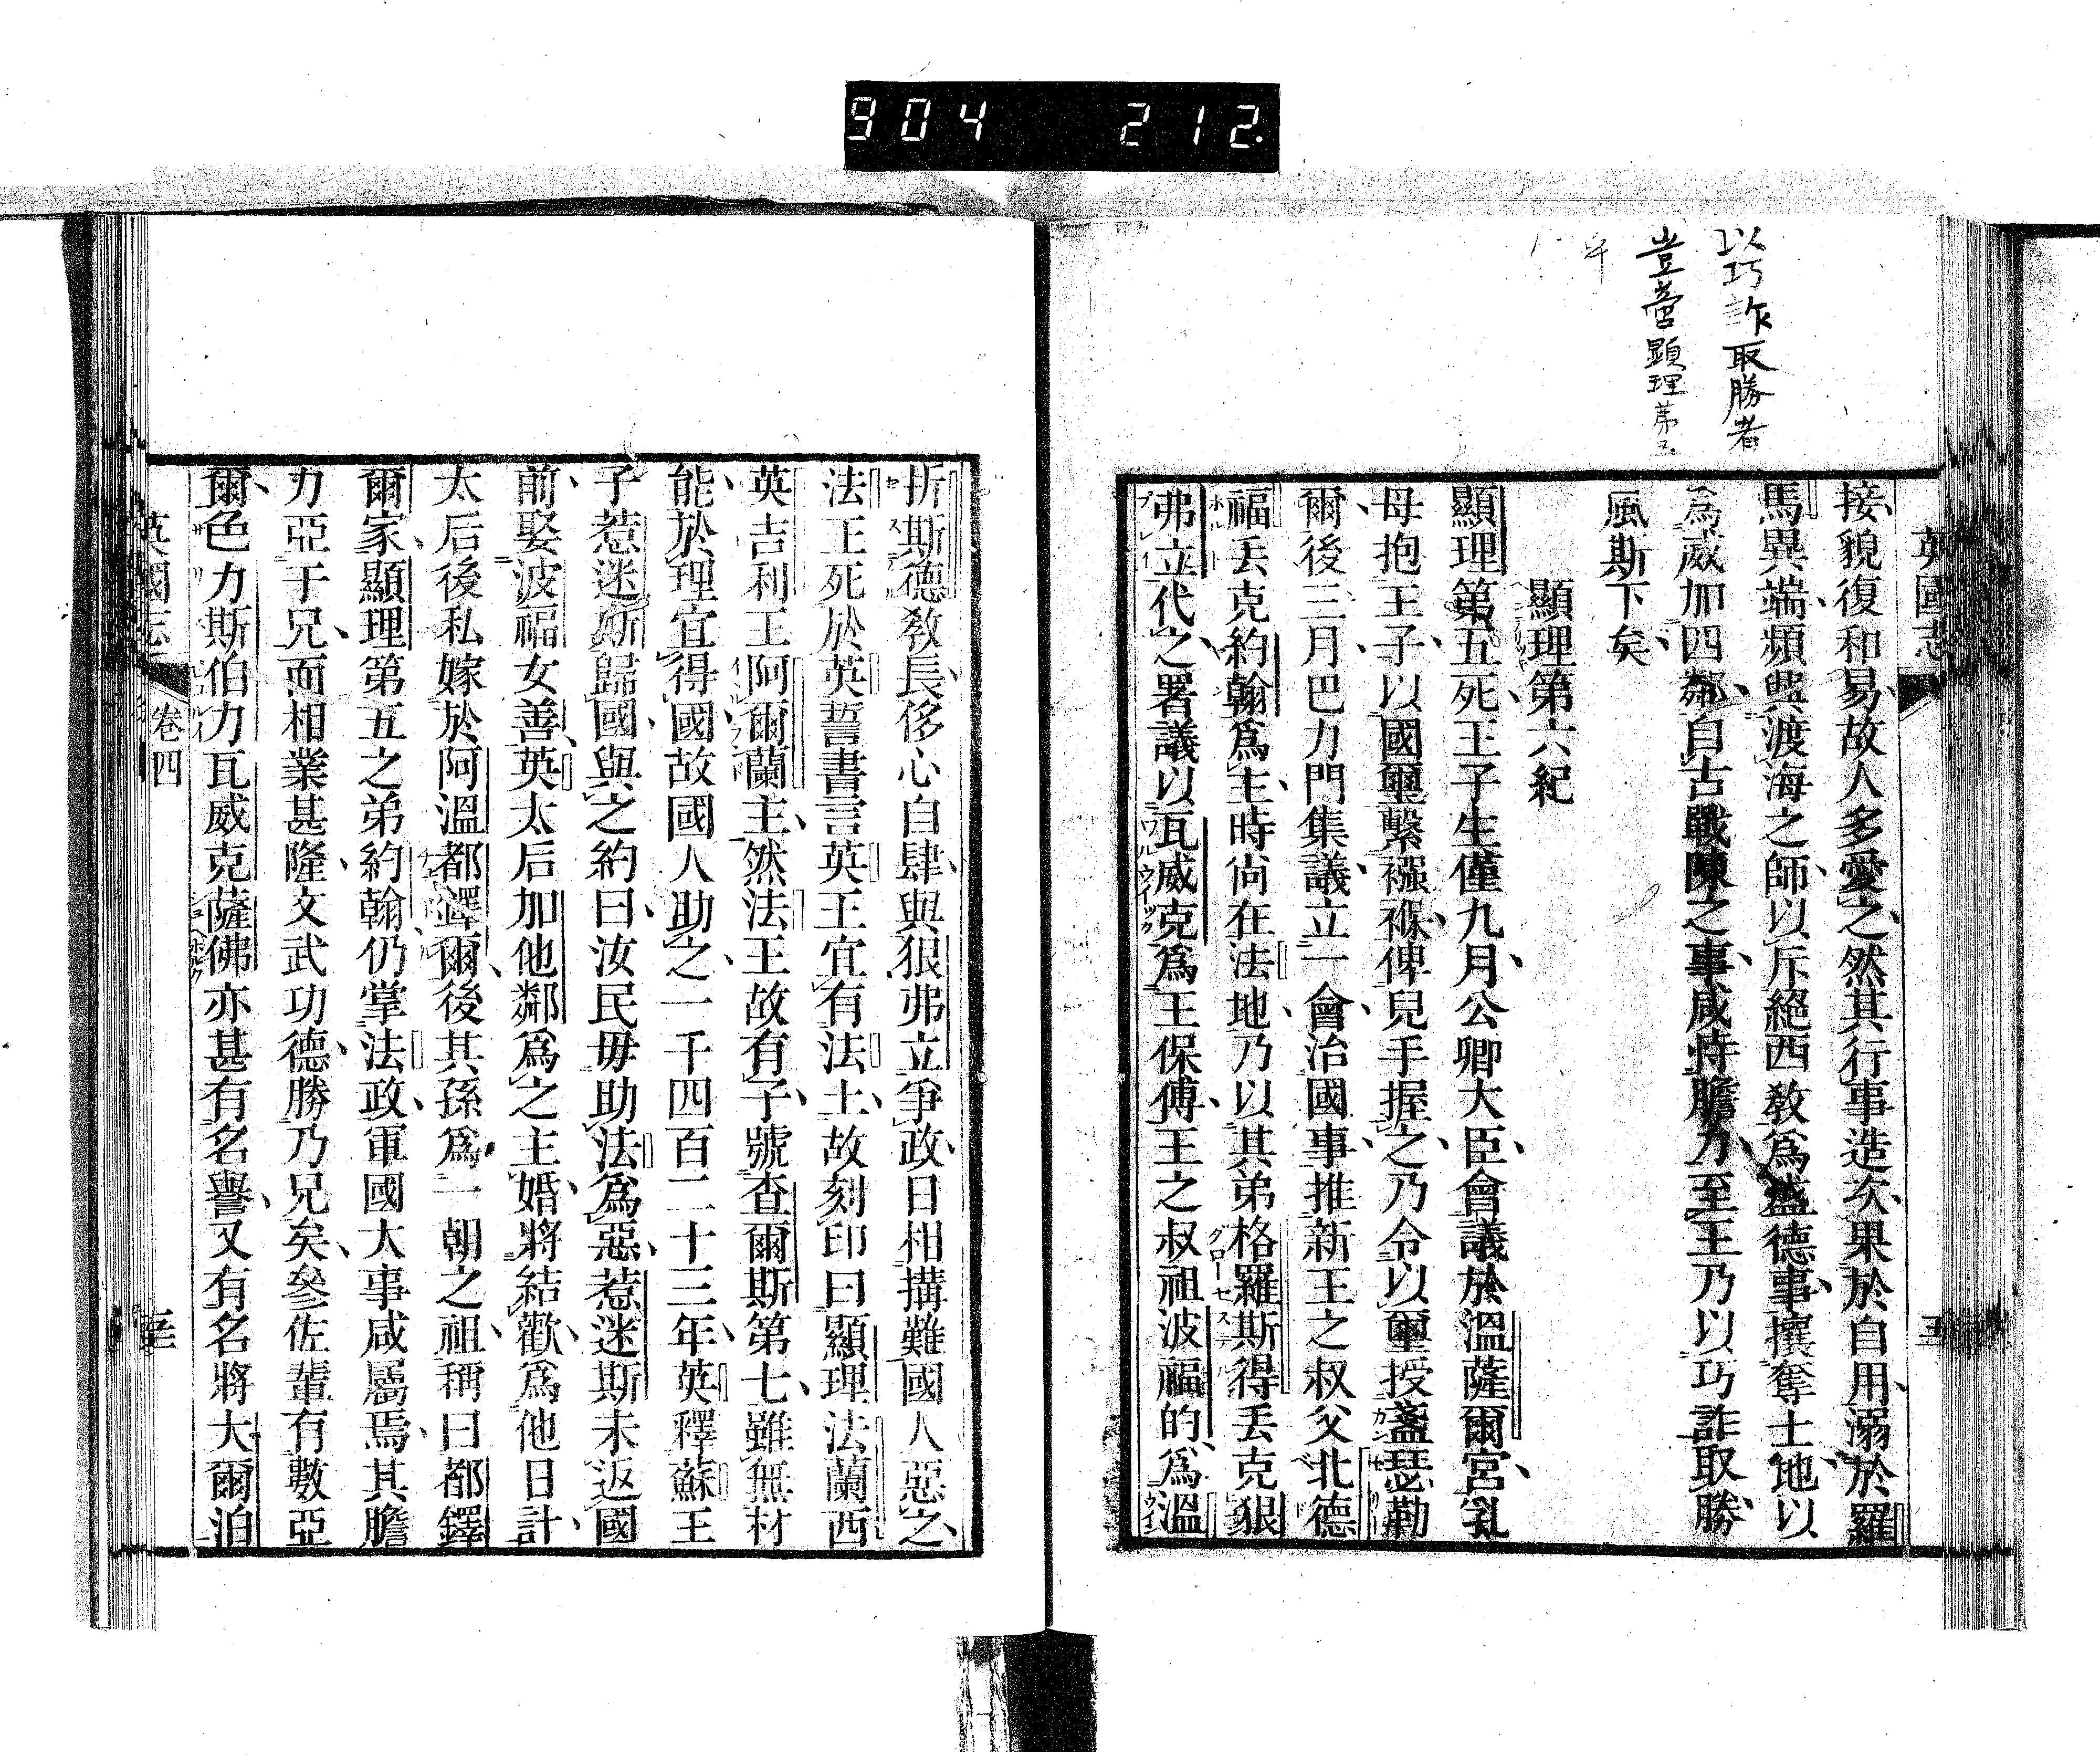 904 212
以巧詐取勝者
豈啻顯理第五
英國志
接貌復和易故人多愛之然其行事造次果於自用溺於羅
馬異端頻興渡海之師以斥絕西教爲盛德事攘奪土地以
爲威加四鄰自古戰陳之事咸恃膽力至王乃以巧詐取勝
風斯下矣
顯理第六紀
顯理第五死王子生僅九月公卿大臣會議於溫薩爾宮乳
母抱王子以國璽繫襁褓俾兒手握之乃令以璽授盞瑟勒
爾後三月巴力門集議立一會治國事推新王之叔父北德
福丢克約翰爲主時尚在法地乃以其弟格羅斯得丢克狠
弗立代之署議以瓦威克爲王保傅王之叔祖波福的爲溫
折斯德教長侈心自肆與狠弗立爭政日相搆難國人惡之
法王死於英誓書言英王宜有法土故刻印曰顯理法蘭西
英吉利王阿爾蘭主然法王故有子號查爾斯第七雖無材
能於理宜得國故國人助之一千四百二十三年英釋蘇王
子惹迷斯歸國與之約曰汝民毋助法爲惡惹迷斯未返國
前娶波福女善英太后加他鄰爲之主婚將結歡爲他日計
太后後私嫁於阿溫都鐸爾後其孫爲一朝之祖稱曰都鐸
爾家顯理第五之弟約翰仍掌法政軍國大事咸屬焉其膽
力亞于兄而相業甚隆文武功德勝乃兄矣參佐輩有數亞
爾色力斯伯力瓦威克薩佛亦甚有名譽又有名將大爾泊
英國志 卷四